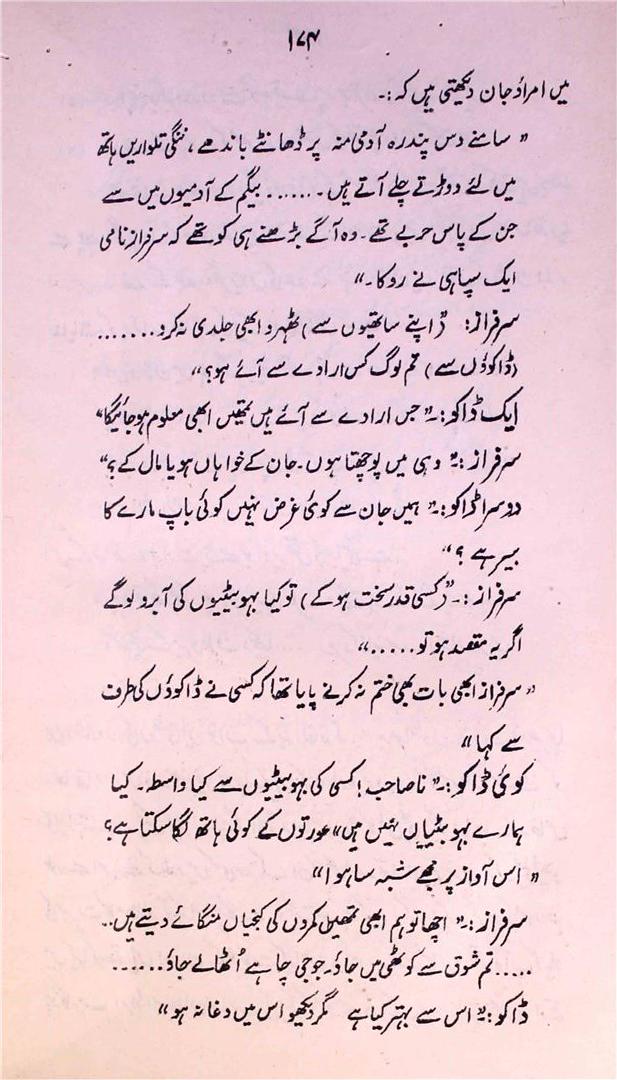 ۱۷۴
میں امراؤ جان دیکھتی ہیں کہ :۔
” سامنے دس پندرہ آدمی منہ پر ڈھانٹے باندھے ، ننگی تلواریں ہاتھ
میں لئے دوڑتے چلے آتے ہیں ۔ ...... بیگم کے آدمیوں میں سے
جن کے پاس حربے تھے ۔ وہ آگے بڑھنے ہی کو تھے کہ سرفراز نامی
ایک سپاہی نے روکا ۔“
سرفراز : ” (اپنے ساتھیوں سے) ٹھہرو ابھی جلدی نہ کرو .......
(ڈاکوؤں سے) تم لوگ کس ارادے سے آئے ہو ؟“
ایک ڈاکو :۔ ” جس ارادے سے آئے ہیں تمھیں ابھی معلوم ہو جائیگا“
سرفراز :۔ ” وہی میں پوچھتا ہوں ۔ جان کے خواہاں ہو یا مال کے ؟“
دوسرا ڈاکو :۔ ” ہمیں جان سے کوئی غرض نہیں کوئی باپ مارے کا
بیر ہے ؟“
سرفراز :۔ ” (کسی قدر سخت ہو کے) تو کیا بہو بیٹیوں کی آبرو لو گے
اگر یہ مقصد ہو تو .....“
” سرفراز ابھی بات بھی ختم نہ کرنے پایا تھا کہ کسی نے ڈاکوؤں کی طرف
سے کہا “
کوئی ڈاکو :۔ ” نا صاحب ! کسی کی بہو بیٹیوں سے کیا واسطہ ۔ کیا
ہمارے بہو بیٹیاں نہیں ہیں “ عورتوں کے کوئی ہاتھ لگا سکتا ہے ؟
” اس آواز پر مجھے شبہ سا ہوا “
سرفراز :۔ ” اچھا تو ہم ابھی تمھیں کمروں کی کنجیاں منگائے دیتے ہیں ..
..... تم شوق سے کوٹھی میں جاؤ ۔ جو جی چاہے اُٹھا لے جاؤ ......
ڈاکو :۔ ” اس سے بہتر کیا ہے مگر دیکھیو اس میں دغا نہ ہو “